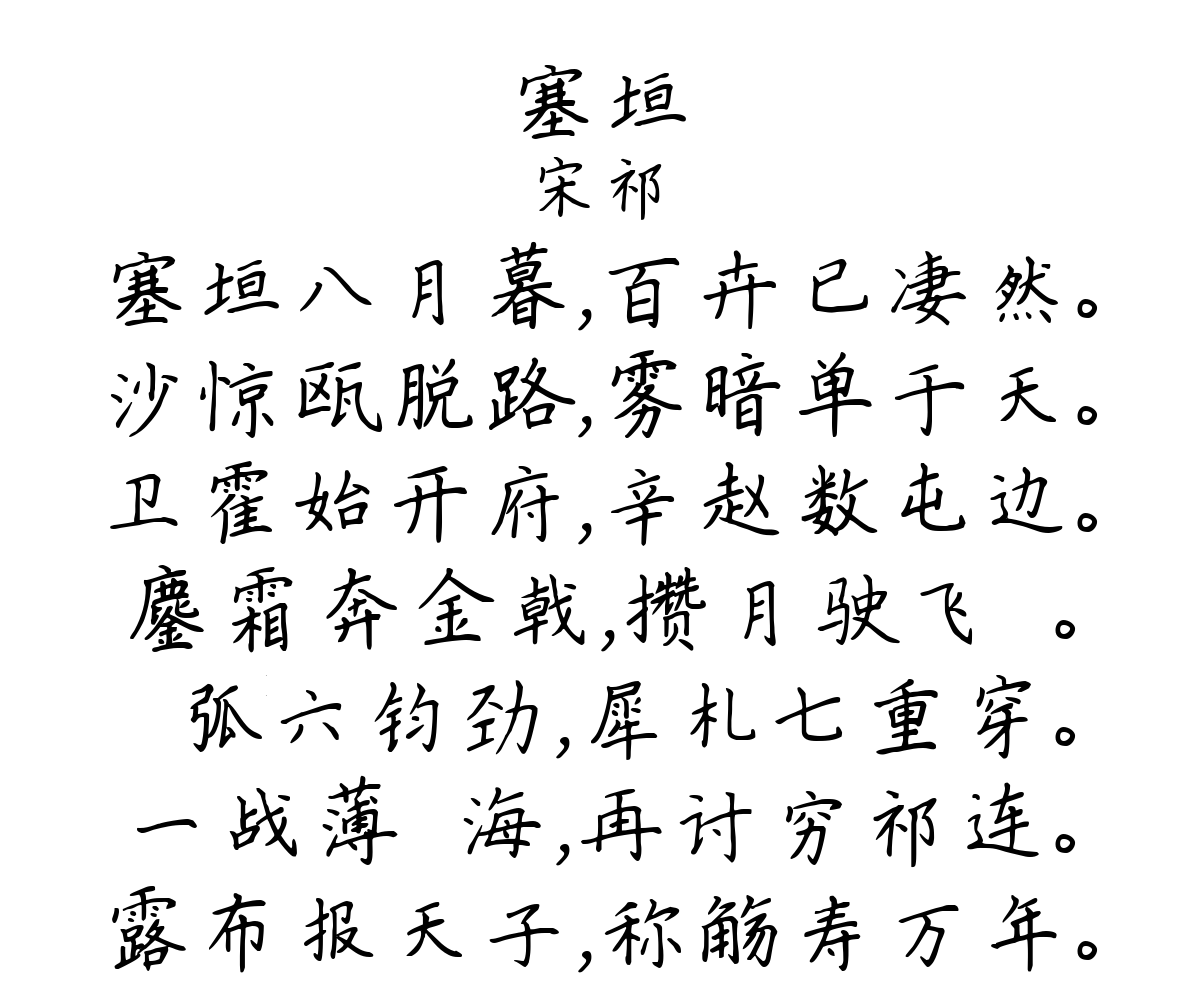 塞垣
宋祁
塞垣八月暮,百卉已凄然。
沙惊瓯脱路,雾暗单于天。
卫霍始开府,辛赵数屯边。
鏖霜奔金戟,攒月驶飞 。
弧六钧劲,犀札七重穿。
一战薄 海,再讨穷祁连。
露布报天子,称觞寿万年。